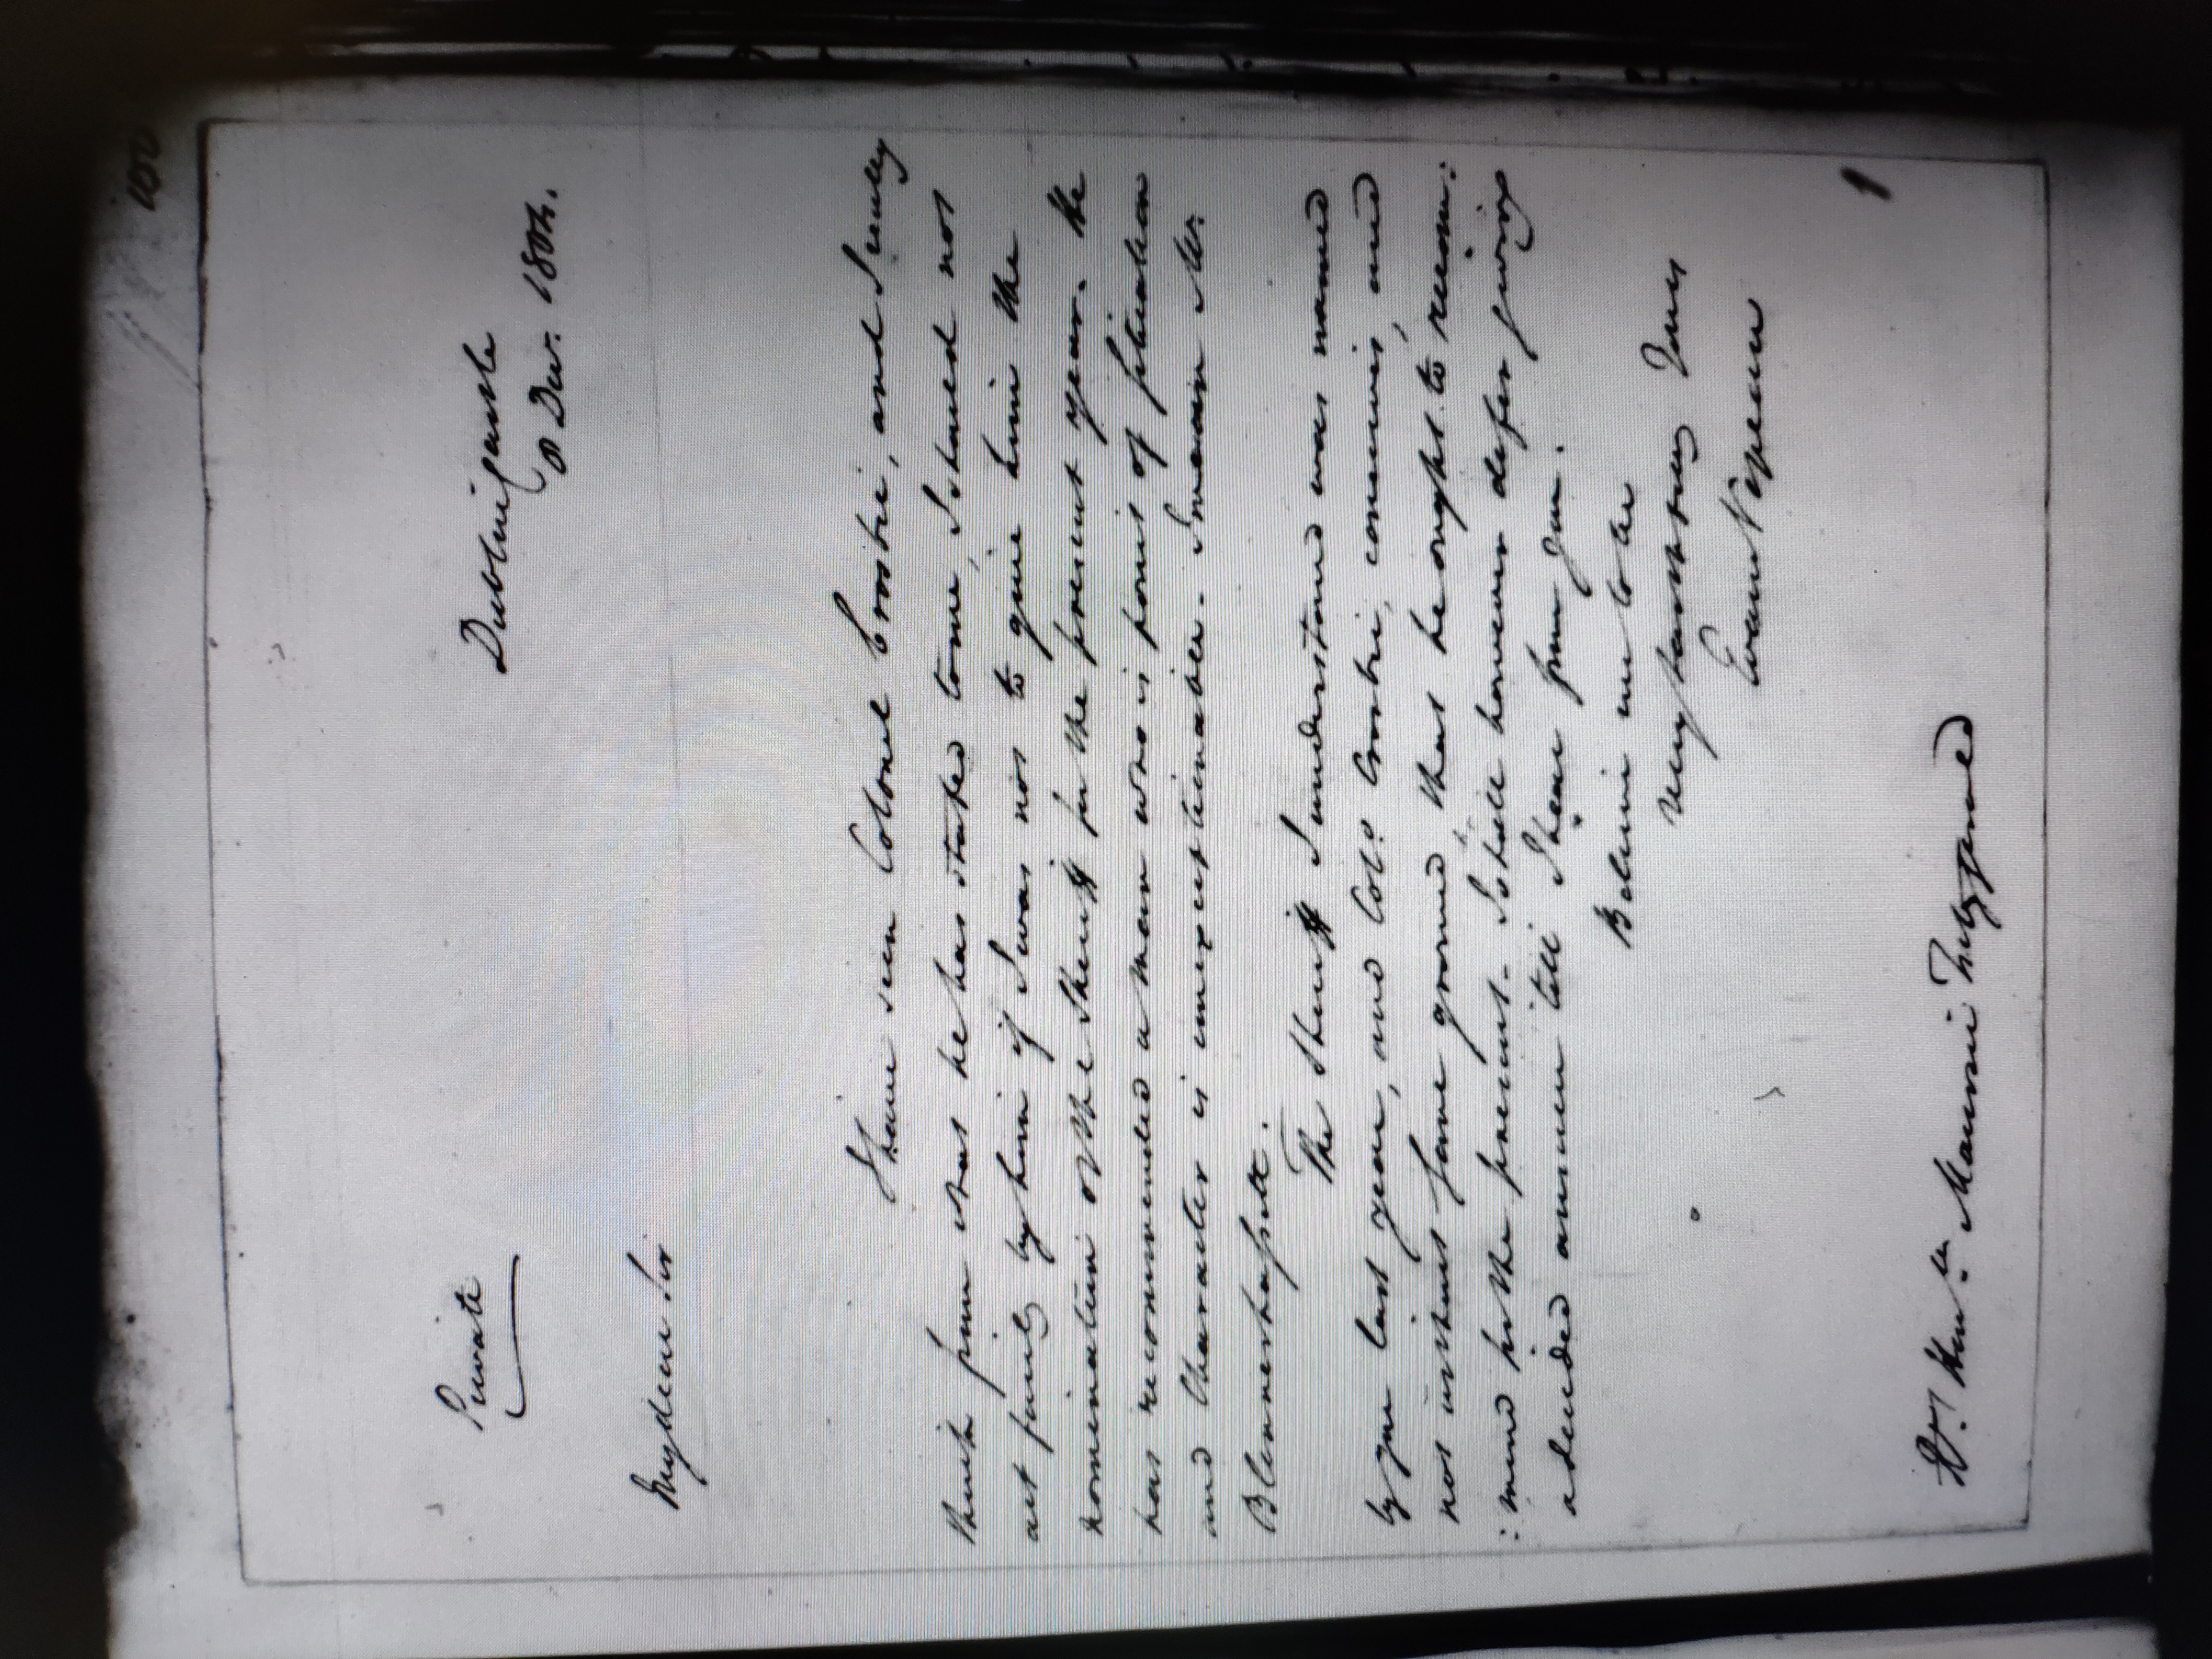 150
Private
Dublin Castle
8 Decr. 1804.
My dear Sir
I have seen Colonel Crosbie, and I really
think from what he has stated to me, I should not
act fairly by him if I was not to give him the
nomination of the Sheriff for the present year. He
has recommended a Man who in point of situation
and Character is unexceptionable. I mean Mr.
Blennerhassett.
The Sheriff I understand was named
by you last year, and Col: Crosbie, conceives, and
not without some ground that he ought to recom:
:mend for the present. I shall however defer giving
a decided answer till I hear from you.
Believe me to be
Very faithfully Yours
Evan Nepean
Rt. Honble. Maurice Fitzgerald